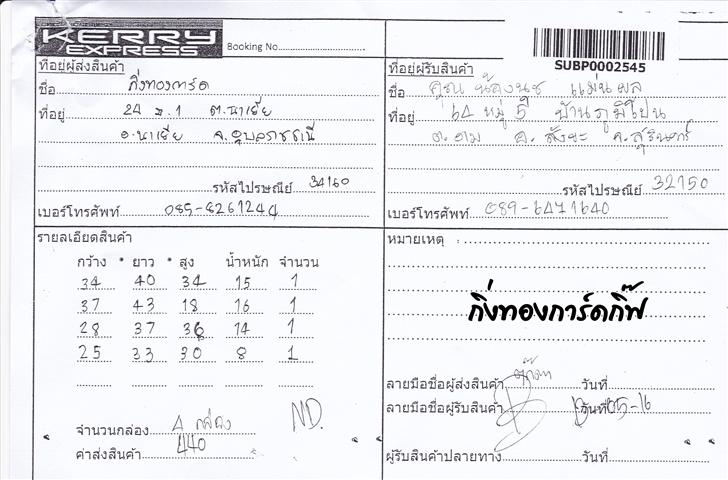 KERRY
EXPRESS
Booking No.
SUBP0002545
ที่อยู่ผู้ส่งสินค้า
ชื่อ กิ่งทองการ์ด
ที่อยู่ 24 ม.1 ต.นาเยีย
อ.นาเยีย จ.อุบลราชธานี
รหัสไปรษณีย์ 34160
เบอร์โทรศัพท์ 085-8261244
ที่อยู่ผู้รับสินค้า
ชื่อ คุณ น้องนุช แม่นผล
ที่อยู่ 64 หมู่ 5 บ้านภูมิโปน
ต.ดม อ.สังขะ จ.สุรินทร์
รหัสไปรษณีย์ 32150
เบอร์โทรศัพท์ 089-6471640
รายละเอียดสินค้า
กว้าง * ยาว * สูง น้ำหนัก จำนวน
34 40 34 15 1
37 43 18 16 1
28 37 36 14 1
25 33 30 8 1
จำนวนกล่อง 4 กล่อง
ND.
ค่าส่งสินค้า 440
หมายเหตุ :
กิ่งทองการ์ดกิ๊ฟ
ลายมือชื่อผู้ส่งสินค้า วันที่
ลายมือชื่อผู้รับสินค้า วันที่ 05-16
ผู้รับสินค้าปลายทาง วันที่